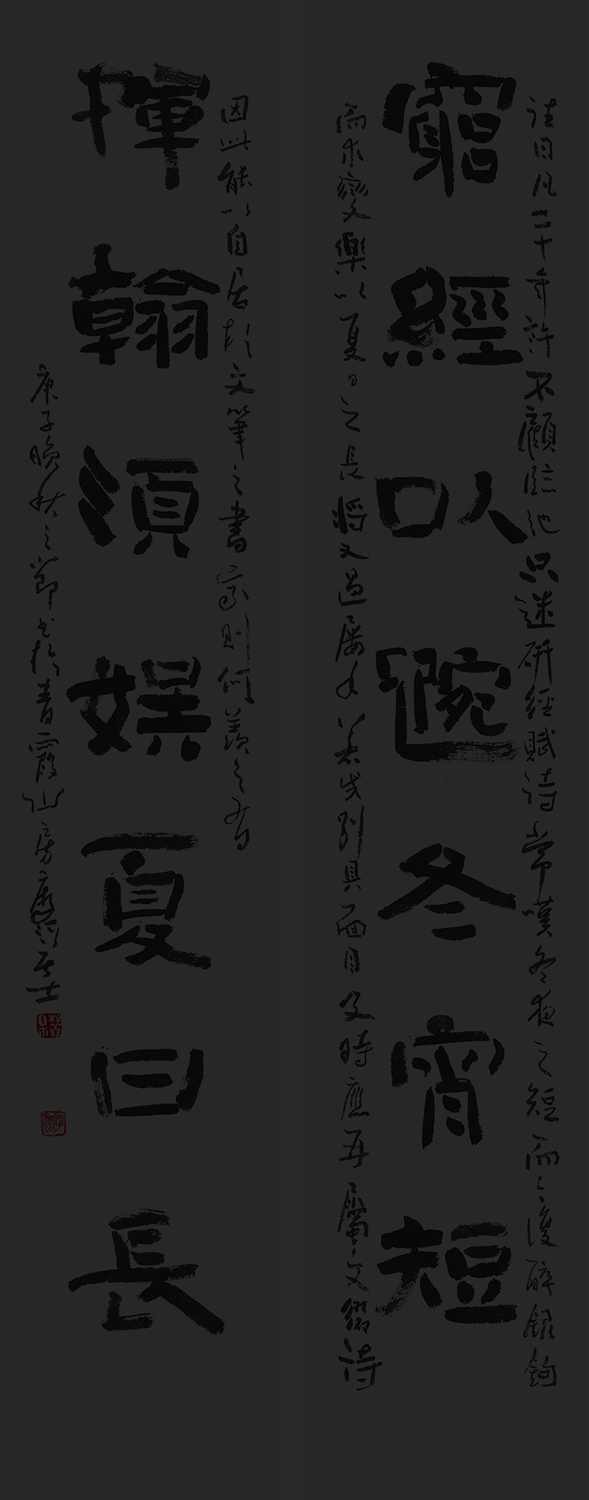 往日凡二十年許不顧臨池只迷研經賦詩常嘆冬夜之短而復醉銀鉤
窮經以冬宵短
而求樂以夏日之長將又過若或別具面目及時應再屬文綴詩
因此能以自居於文筆之書家則何羨之有
揮翰須娛夏日長
庚子晚秋之節書於青霞山房居士